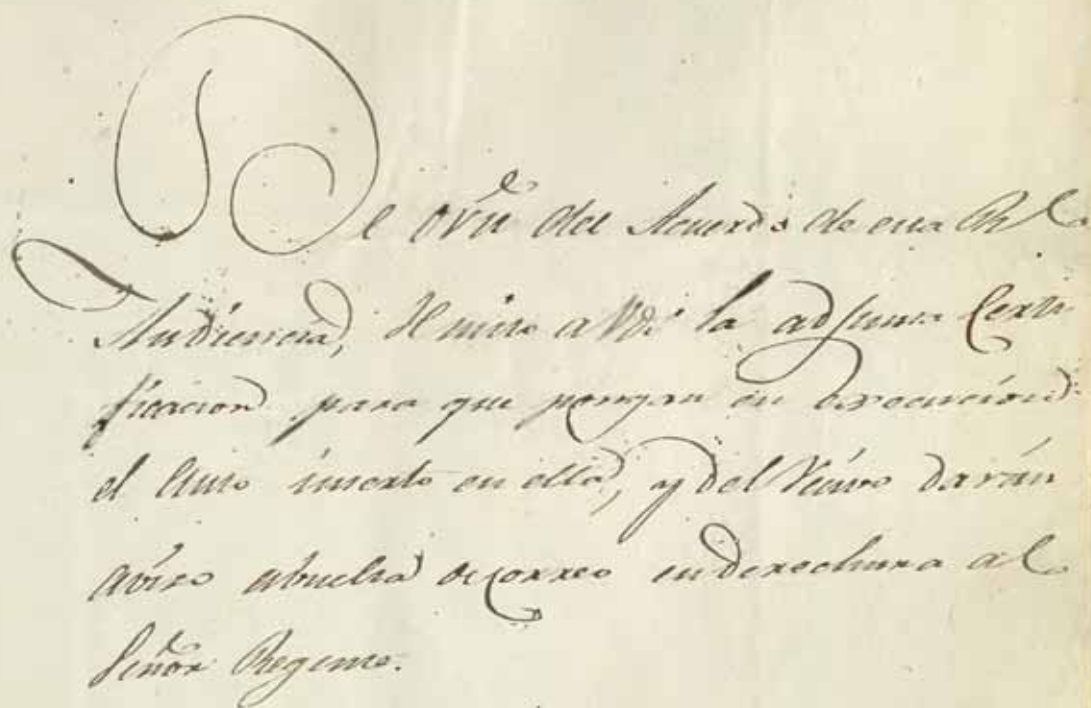 De orn. del Acuerdo de esta Rl
Audiencia, Remito a Vds. la adjunta Certi
ficacion para que pongan en execucion
el Auto inserto en ella, y del Recivo darán
aviso abuelta de correo enderechura al
Señor Regente.